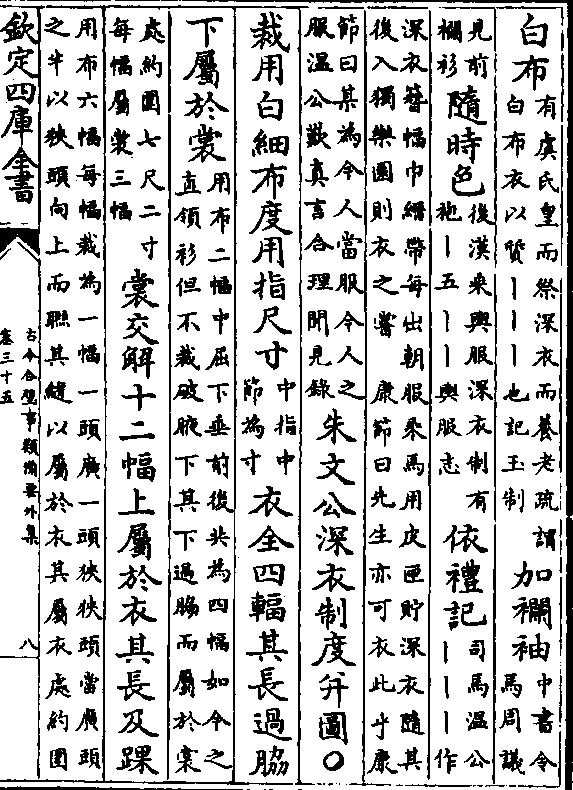 白布有虞氏皇而祭深衣而養老疏謂白布衣以質丨丨丨丨也記玉制加襴袖中書令馬周議
見前襴衫隨時色後漢乘輿服深衣制有袍丨五丨丨丨輿服志依禮記司馬温公丨丨丨作
深衣簪幅巾縉帶每出朝服乘馬用皮匣貯深衣隨其後入獨樂園則衣之嘗康節曰先生亦可衣此乎康
節曰某為今人當服今人之服温公歎真言合理聞見錄朱文公深衣制度并圖〇
裁用白細布度用指尺寸中指中節為寸衣全四輻其長過脇
下屬於裳用布二幅中屈下垂前後共為四幅如今之直領衫但不裁破腋下其下過脇而屬於裳
處約圍七尺二寸每幅屬裳三幅裳交解十二幅上屬於衣其長及踝
用布六幅每幅裁為一幅一頭廣一頭狹狹頭當廣頭之半以狹頭向上而聯其縫以屬於衣其屬衣處約圍
欽定四庫全書
古今合璧事類備要外集
卷三十五
八